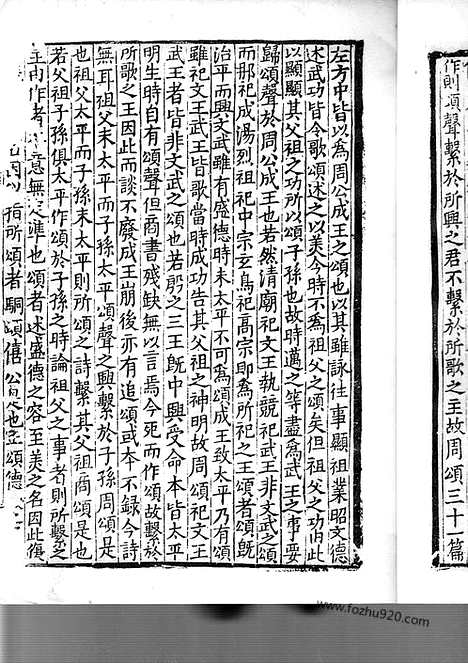 作則頌聲繫於所興之君不繫於所歌之主故周頌三十一篇
左方中皆以爲周公成王之頌也以其雖詠往事顯祖業昭文德
述武功皆令歌頌述之以美今時不爲祖父之頌矣但祖父之功由此
以顯顯其父祖之功所以頌子孫也故時邁之等盡爲武王之事要
歸頌聲於周公成王也若然清廟祀文王執競祀武王非文武之頌
而那祀成湯烈祖祀中宗玄鳥祀高宗即爲所祀之王頌者頌既
治平而興文武雖有盛德時未太平不可爲頌成王致太平乃有頌
雖祀文王武王皆歌當時成功告其父祖之神明故周頌祀文王
武王者皆非文武之頌也若商之三王既中興受命本皆太平
明生時自有頌聲但商書殘缺無以言焉今死而作頌故繫於
所歌之王因此而談不廢成王崩後亦有追頌或本不錄今詩
無耳祖父未太平而子孫太平頌聲之興繫於子孫周頌是
也祖父太平而子孫未太平則所頌之詩繫其父祖商頌是也
若父祖子孫俱太平作頌於子孫之時論祖父之事者則所繫之
主由作者 意無定準也頌者述盛德之容至美之名因此復
指所頌者駉頌僖公 也 頌德
www.fozhu920.com